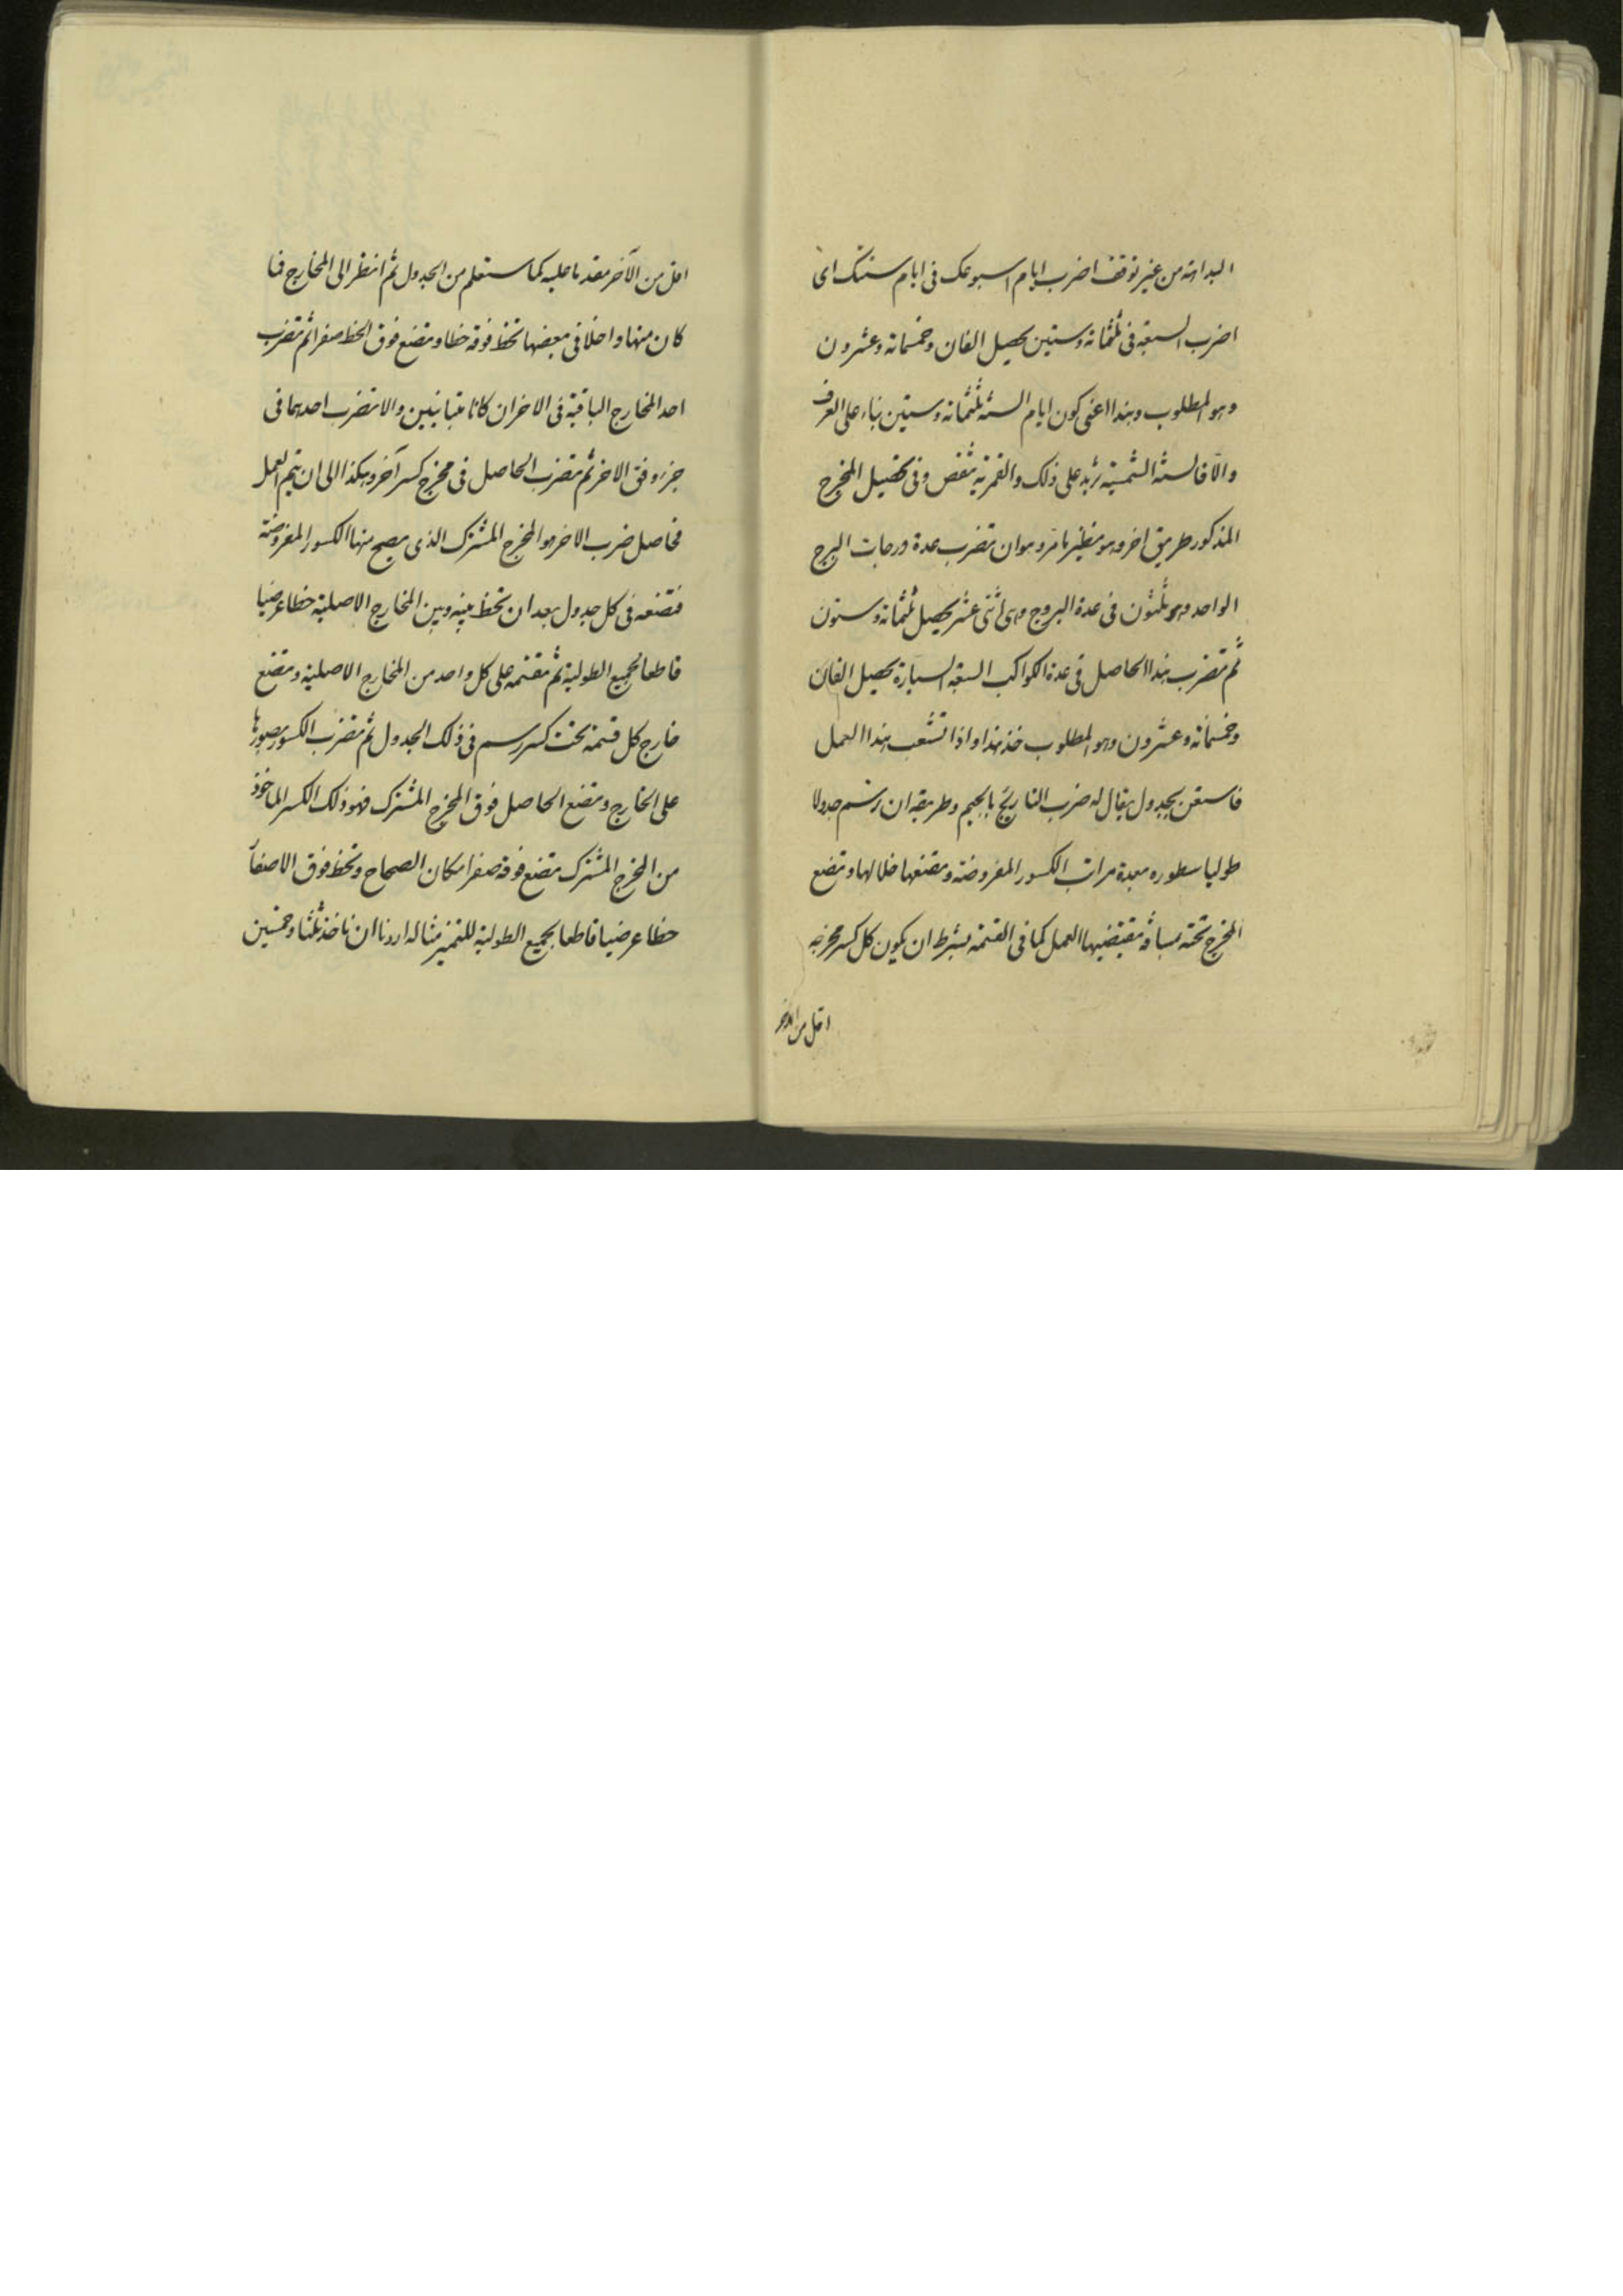 البداهة من غير توقف اضرب ايام اسبوعك فى ايام سنتك اى
اضرب السبعة فى ثلثمائة وستين يحصل الفان وخمسمائة وعشرون
وهو المطلوب وهذا اعنى كون ايام السنة ثلثمائة وستين بناء على العرف
والّا فالسنة الشمسية تزيد على ذلك والقمرية تنقص وفى تحصيل المخرج
المذكور طريق اخر وهو نظير ما مر وهو ان تضرب عدة درجات البرج
الواحد وهو ثلثون فى عدة البروج وهى اثنى عشر يحصل ثلثمائة وستون
ثم تضرب هذا الحاصل فى عدة الكواكب السبعة السيارة يحصل الفان
وخمسمائة وعشرون وهو المطلوب خذ هذا واذا تشعب هذا العمل
فاستعن بجدول يقال له ضرب التاريج بالجيم وطريقه ان ترسم جدولا
طوليا سطوره بعدة مراتب الكسور المفروضة وتضعها خلالها وتضع
المخرج تحته بمسافة يقتضيها العمل كما فى القسمة بشرط ان يكون كل كسر مخرجه
اقل من الاخر
اقل من الآخر مقدما عليه كما ستعلم من الجدول ثم انظر الى المخارج فما
كان منها داخلا فى بعضها تخط فوقه خطا وتضع فوق الخط صفرا ثم تضرب
احد المخارج الباقية فى الاخر ان كانا متباينين والا تضرب احدهما فى
جزء وفق الاخر ثم تضرب الحاصل فى مخرج كسر آخر وهكذا الى ان يتم العمل
فحاصل ضرب الاخر هو المخرج المشترك الذى يصح منها الكسور المفروضة
فتضعه فى كل جدول بعد ان تخط بينه وبين المخارج الاصلية خطا عرضيا
قاطعا لجميع الطولية ثم تقسمه على كل واحد من المخارج الاصلية وتضع
خارج كل قسمة تحت كسر رسم فى ذلك الجدول ثم تضرب الكسور بصورها
على الخارج وتضع الحاصل فوق المخرج المشترك فهو ذلك الكسر الماخوذ
من المخرج المشترك تضع فوقه صفرا مكان الصحاح وتخط فوق الاصفار
خطا عرضيا قاطعا لجميع الطولية للتميز مثاله اردنا ان ناخذ ثلثا وخمسين